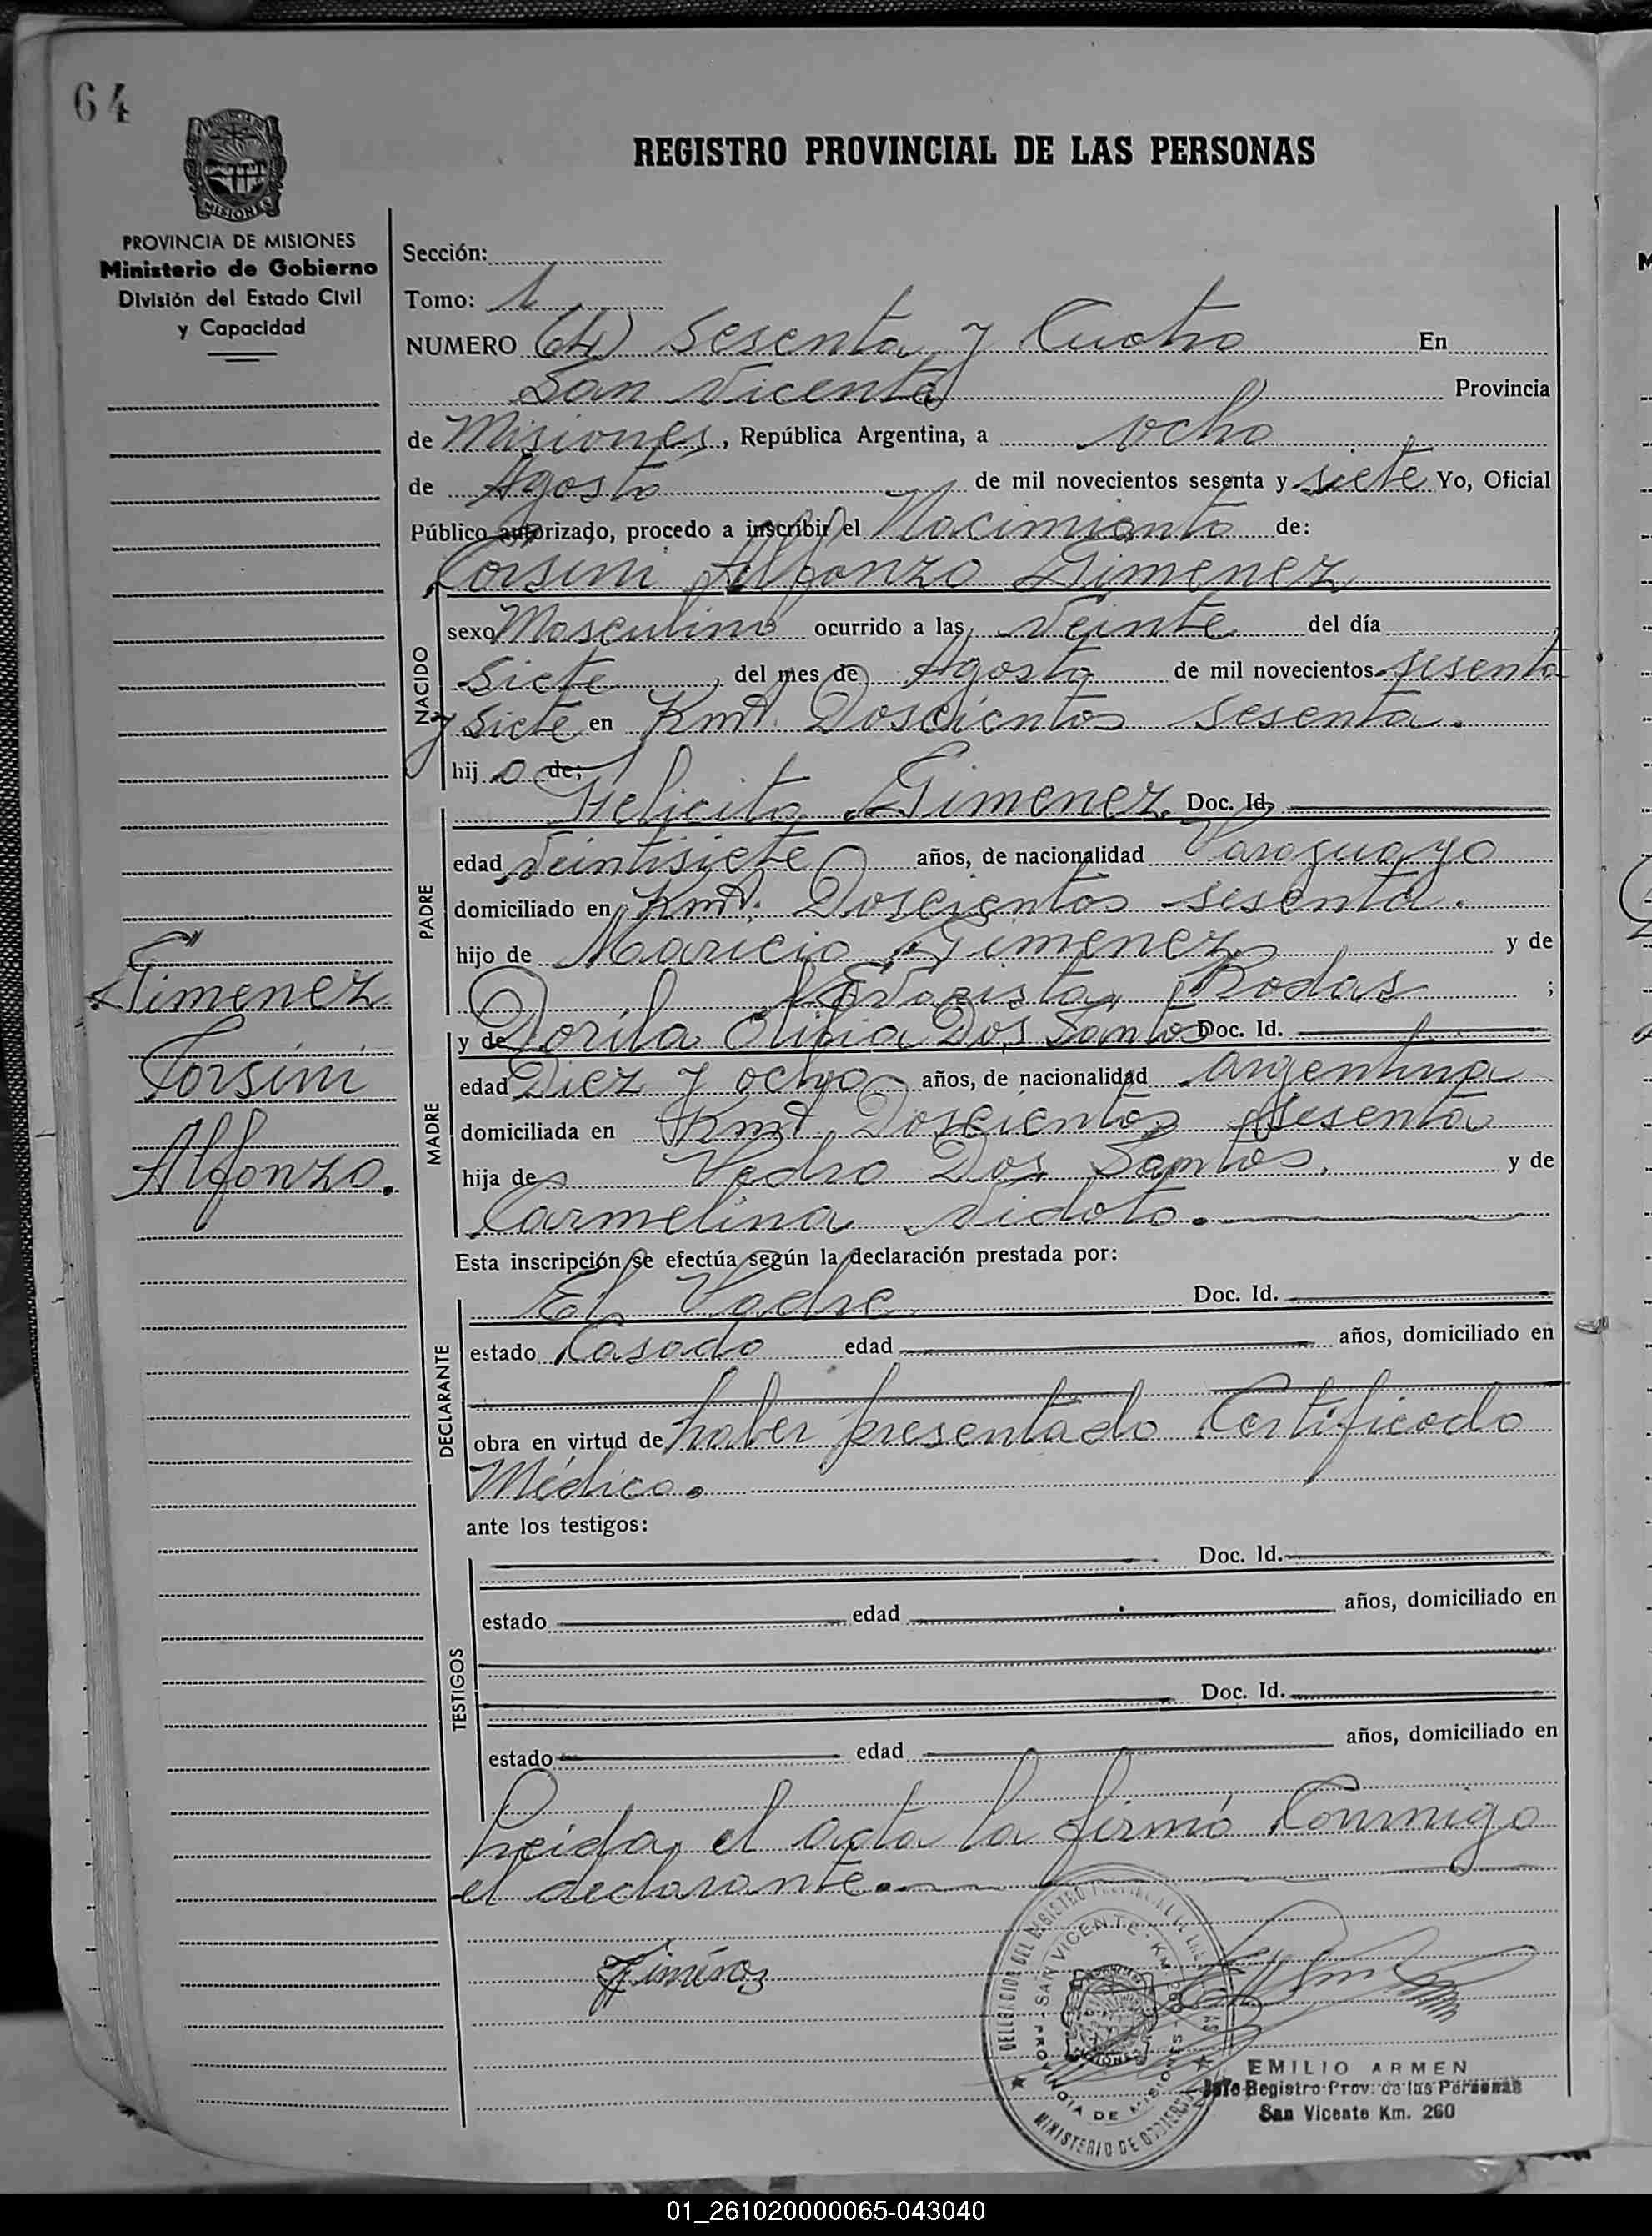 64
PROVINCIA DE MISIONES
Ministerio de Gobierno
División del Estado Civil
y Capacidad
REGISTRO PROVINCIAL DE LAS PERSONAS
Sección:
Tomo: 1
NUMERO (64) Sesenta y Cuatro En
San Vicente Provincia
de Misiones, República Argentina, a ocho
de Agosto de mil novecientos sesenta y siete Yo, Oficial
Público autorizado, procedo a inscribir el Nacimiento de:
Corsini Alfonzo Gimenez
NACIDO
sexo Masculino ocurrido a las Veinte del día
Siete del mes de Agosto de mil novecientos sesenta
y Siete en Kmt. Doscientos sesenta.
hijo de:
PADRE
Felicito Gimenez. Doc. Id.
edad Veintisiete años, de nacionalidad Paraguayo
domiciliado en Kmt. Doscientos sesenta.
hijo de Maricio Gimenez y de
Evarista Rodas ;
MADRE
y de Dorila Olibia Dos Santos Doc. Id.
edad Diez y ocho años, de nacionalidad argentina
domiciliada en Kmt. Doscientos Sesenta
hija de Pedro Dos Santos. y de
Carmelina Vidoto.
Gimenez
Corsini
Alfonzo.
Esta inscripción se efectúa según la declaración prestada por:
DECLARANTE
El Padre Doc. Id.
estado Casado edad años, domiciliado en
obra en virtud de haber presentado Certificado
Médico.
ante los testigos:
TESTIGOS
Doc. Id.
estado edad años, domiciliado en
Doc. Id.
estado edad años, domiciliado en
Leida el acta la firmó Conmigo
el declarante.
Giménez
SAN VICENTE - KM 260
PROVINCIA DE MISIONES
MINISTERIO DE GOBIERNO
EMILIO ARMEN
Jefe Registro Prov. de las Personas
San Vicente Km. 260
01_261020000065-043040